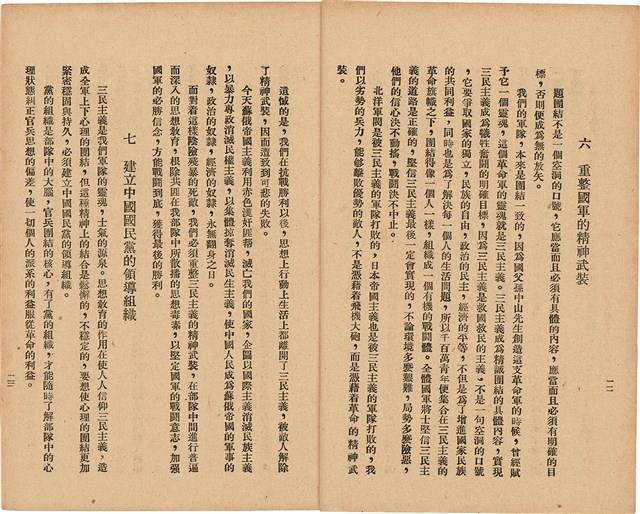 六 重整國軍的精神武裝
題團結不是一個空洞的口號,它應當而且必須有具體的內容,應當而且必須有明確的目
標,否則便成為無的放矢。
我們的軍隊,本來是團結一致的,因為國父孫中山先生創造這支革命軍的時候,曾經賦
予它一個靈魂,這個革命軍的靈魂就是三民主義。三民主義成為精誠團結的具體內容,實現
三民主義成為犧牲奮鬪的明確目標,因為三民主義是救國救民的主義,不是一句空洞的口號
,它要爭取國家的獨立,民族的自由,政治的民主,經濟的平等,不但是為了增進國家民族
的共同利益,同時也是為了解決每一個人的生活問題,所以千百萬青年便集合在三民主義的
革命旗幟之下,團結得像一個人一樣,組織成一個有機的戰鬪體。全體國軍將士堅信三民主
義的道路是正確的,堅信三民主義最後一定會實現的,不論環境多麼艱難,局勢多麼險惡,
他們的信心決不動搖,戰鬪決不中止。
北洋軍閥是被三民主義的軍隊打敗的,日本帝國主義也是被三民主義的軍隊打敗的,我
們以劣勢的兵力,能够擊敗優勢的敵人,不是憑藉着飛機大砲,而是憑藉着革命的精神武
裝。
一二
遺憾的是,我們在抗戰勝利以後,思想上行動上生活上都離開了三民主義,被敵人解除
了精神武裝,因而遭致到可悲的失敗。
今天蘇俄帝國主義利用赤色漢奸匪幫,滅亡我們的國家,企圖以國際主義消滅民族主義
,以暴力專政消滅民權主義,以集體掠奪消滅民生主義,使中國人民成為蘇俄帝國的軍事的
奴隸,政治的奴隸,經濟的奴隸,永無翻身之日。
面對着這樣陰險殘暴的死敵,我們必須重整三民主義的精神武裝,在部隊中間進行普遍
而深入的思想教育,根除共匪在我部隊中所散播的思想毒素,以堅定國軍的戰鬪意志,加強
國軍的必勝信念,方能戰鬪到底,獲得最後的勝利。
七 建立中國國民黨的領導組織
三民主義是我們軍隊的靈魂,士氣的源泉。思想教育的作用在使人人信仰三民主義,造
成全軍上下心理的團結,但這種精神上的結合是鬆懈的,不穩定的,要想使心理的團結更加
緊密穩固與持久,必須建立中國國民黨的領導組織。
黨的組織是部隊中的大腦,官兵團結的核心,有了黨的組織,才能隨時了解部隊中的心
理狀態糾正官兵思想的偏差,使一切個人的派系的利益服從革命的利益。
一三